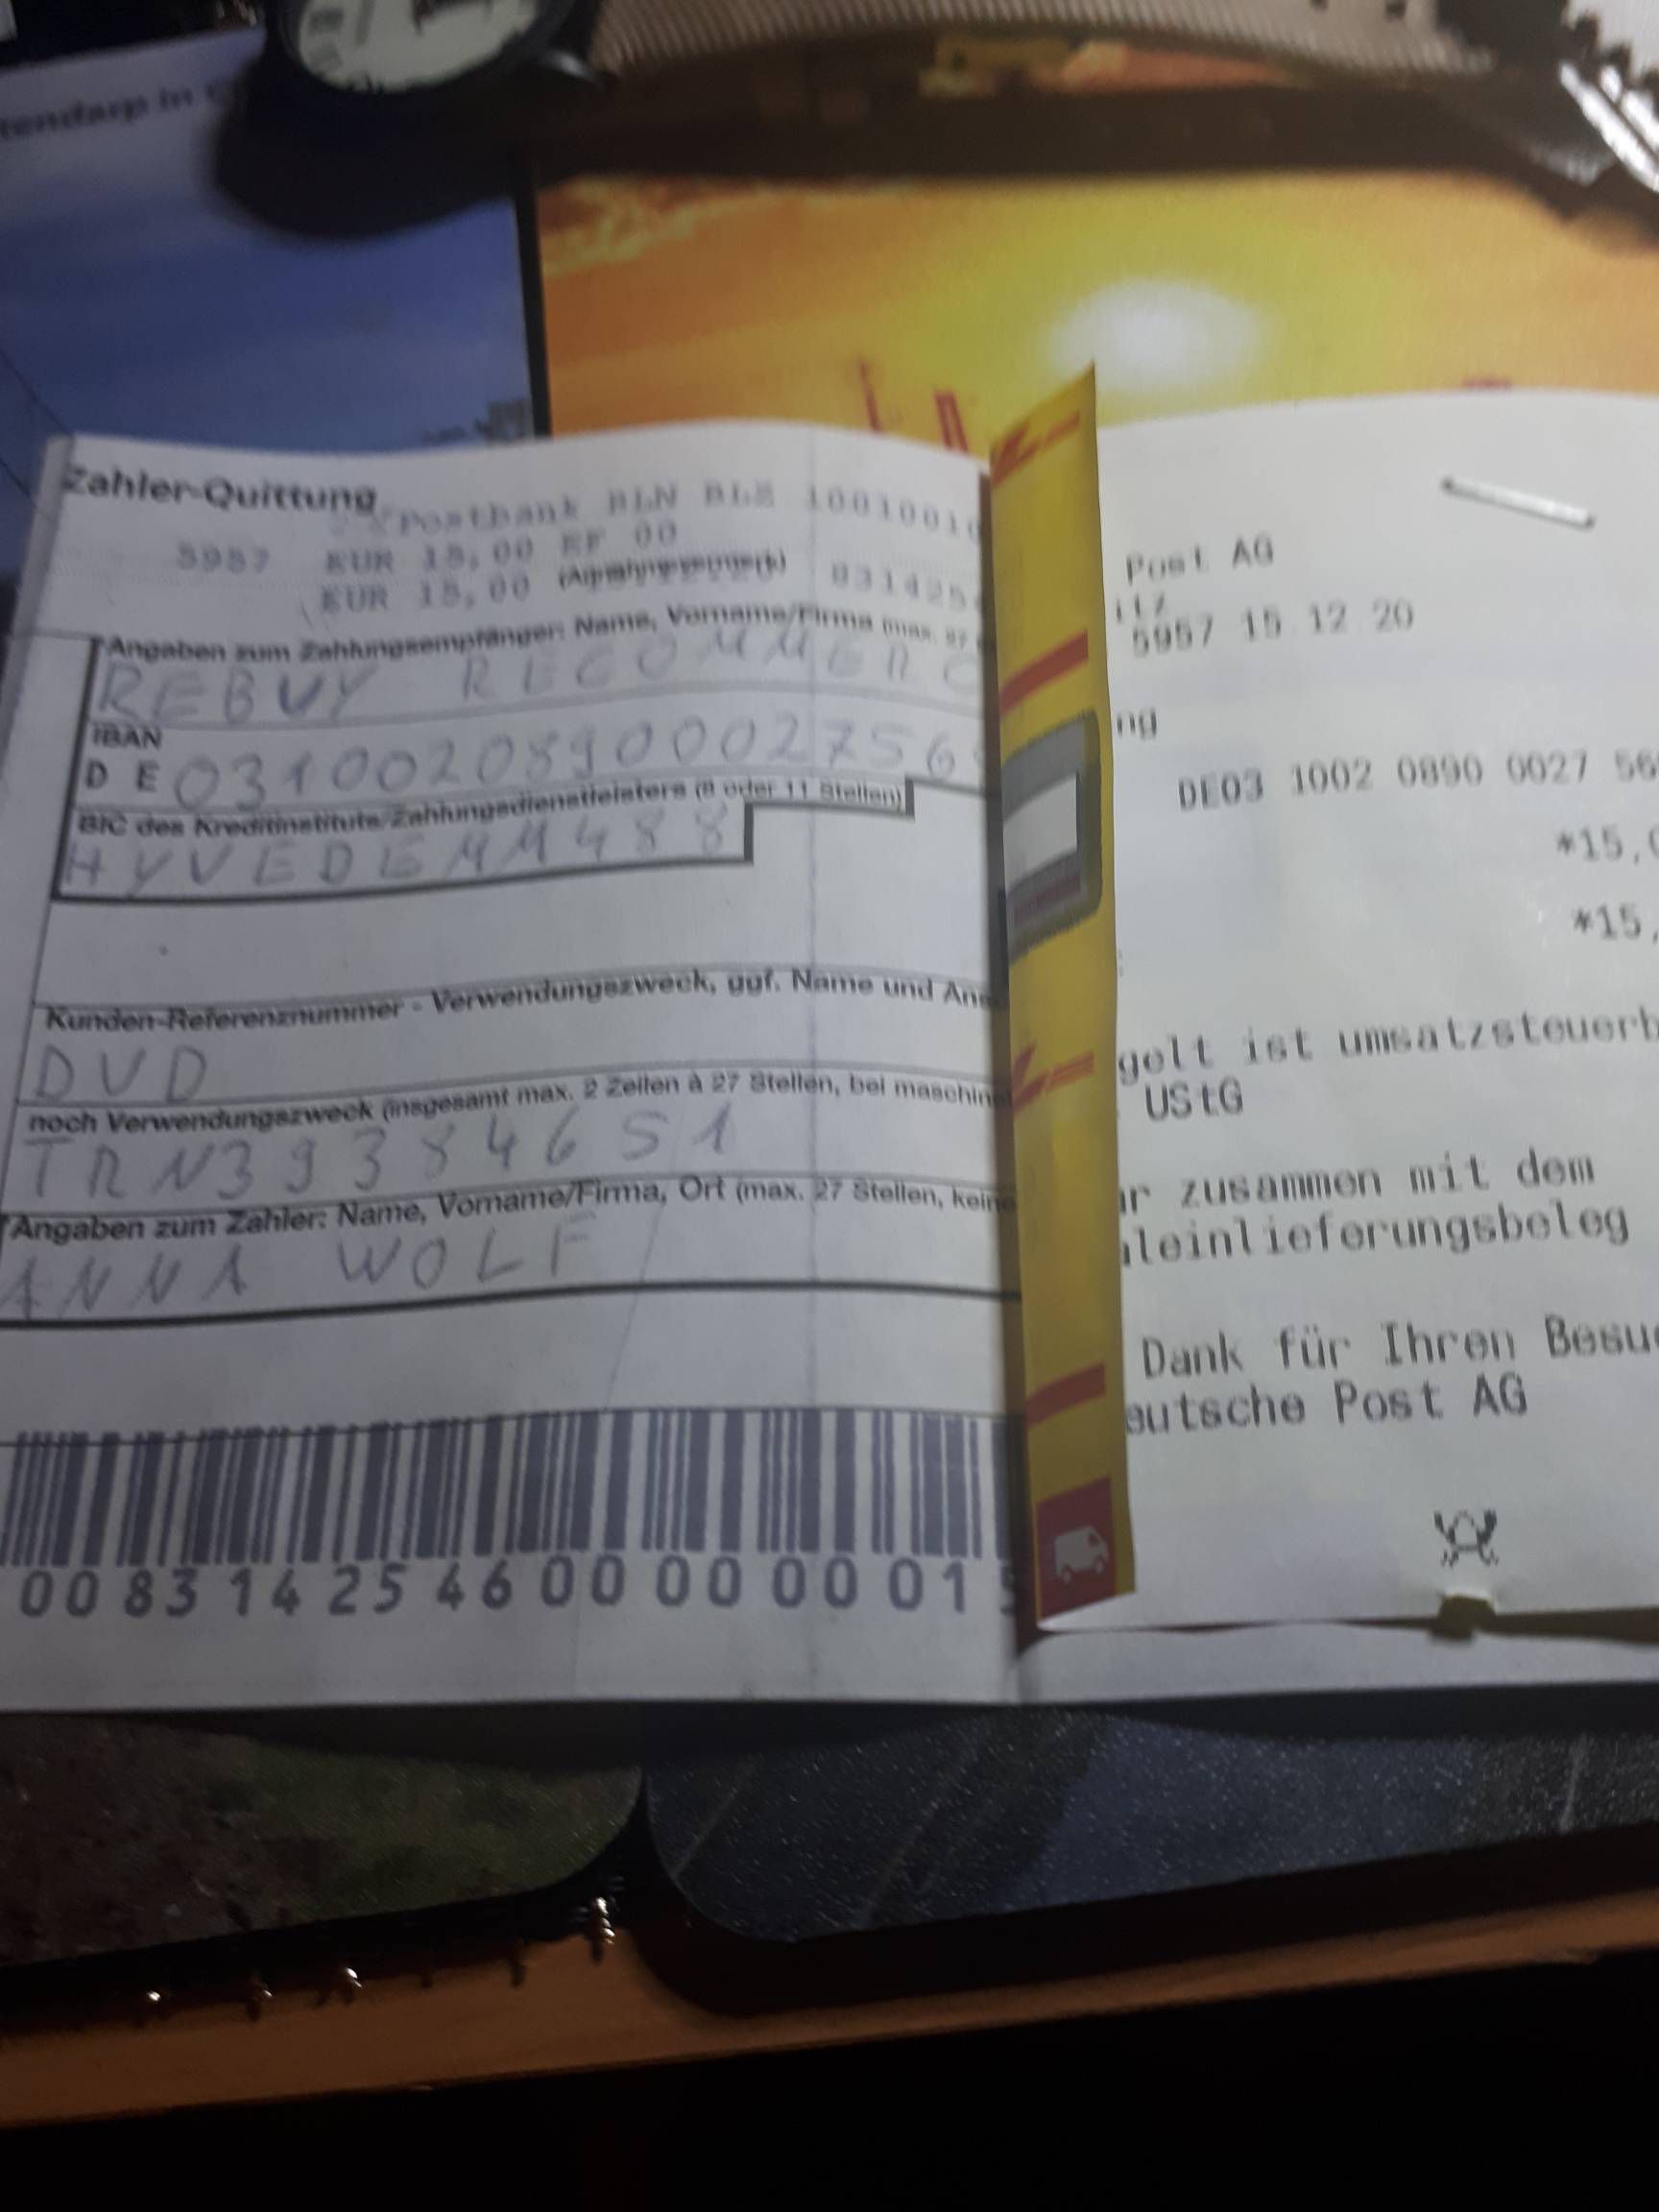 tendarp in
Zahler-Quittung
Postbank BLN BLZ 10010010
5957 EUR 15,00 EF 00
EUR 15,00 (Annahmevermerk) 831425
Angaben zum Zahlungsempfänger: Name, Vorname/Firma (max. 27
REBUY RECOMMERC
IBAN
DE03100208900027756
BIC des Kreditinstituts/Zahlungsdienstleisters (8 oder 11 Stellen)
HYVEDEMM488
Kunden-Referenznummer - Verwendungszweck, ggf. Name und Ans
DVD
noch Verwendungszweck (insgesamt max. 2 Zeilen à 27 Stellen, bei maschin
TRN39384651
Angaben zum Zahler: Name, Vorname/Firma, Ort (max. 27 Stellen, keine
ANNA WOLF
00 83 14 25 46 00 00 00 01
Post AG
itz
5957 15.12.20
ng
DE03 1002 0890 0027 56
*15,0
*15,
gelt ist umsatzsteuerb
UStG
ur zusammen mit dem
leinlieferungsbeleg
Dank für Ihren Besu
eutsche Post AG